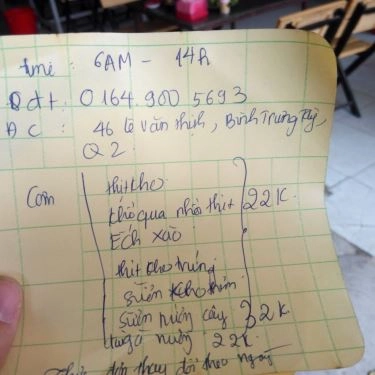 Time : 6AM - 14h
Sđt : 0164.900 5693
ĐC : 46 lê văn thịnh, Bình Trưng Tây,
Q2.
Cơm
thịt kho
khổ qua nhồi thịt 22K.
Ếch xào
thịt kho trứng
sườn kho thơm
sườn nướng cây 32K.
nướng 22K.
đơn thay đổi theo ngày